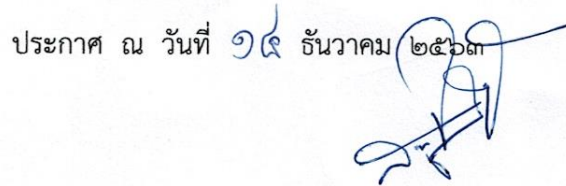 ประกาศ ณ วันที่ ๑๔ ธันวาคม ๒๕๖๓